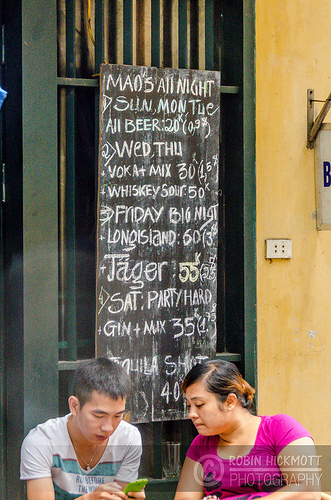 MAO'S All NIGHT
1) SUN, MON, TUE
All BEER: 20K (0,9$)
2) WED, THU
VOKA + MIX 30K
+ WHISKEY SOUR: 50K
3) FRIDAY BIG NIGT
+ LONGISLAND: 60K
+ Jäger: 55K
4) SAT: PARTY HARD
+ GIN + MIX 35K
TQUILA SHOT
40
B
© ROBIN HICKMOTT
PHOTOGRAPHY